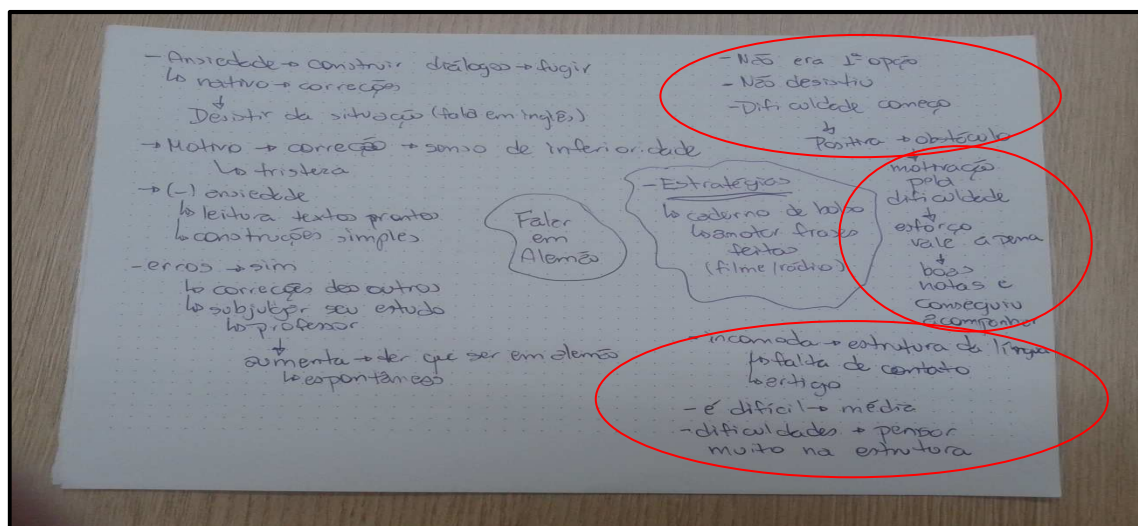 - Ansiedade → construir diálogos → fugir
↳ nativo → correções
↓
Desistir da situação (fala em inglês)
→ Motivo → correção → senso de inferioridade
↳ tristeza
→ (-) ansiedade
↳ leitura textos prontos
↳ construções simples
- erros → sim
↳ correções dos outros
↳ subjulgar seu estudo
↳ professor
↓
aumenta → der que ser em alemão
↳ espontâneos
Falar
em
Alemão
- Estratégias
↳ caderno de bolso
↳ anotar frases
feitas
(filme/rádio)
- Não era 1ª opção
- Não desistiu
- Dificuldade começo
↓
Positiva → obstáculo
↓
motivação
pela
dificuldade
↓
esforço
vale a pena
↓
boas
notas e
conseguiu
acompanhar
- incomoda → estrutura da língua
↳ falta de contato
↳ artigo
- é difícil → média
- dificuldades → pensar
muito na estrutura